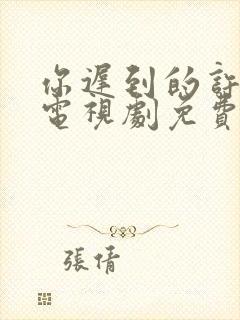 你遲到的許
電視劇免費
張倩